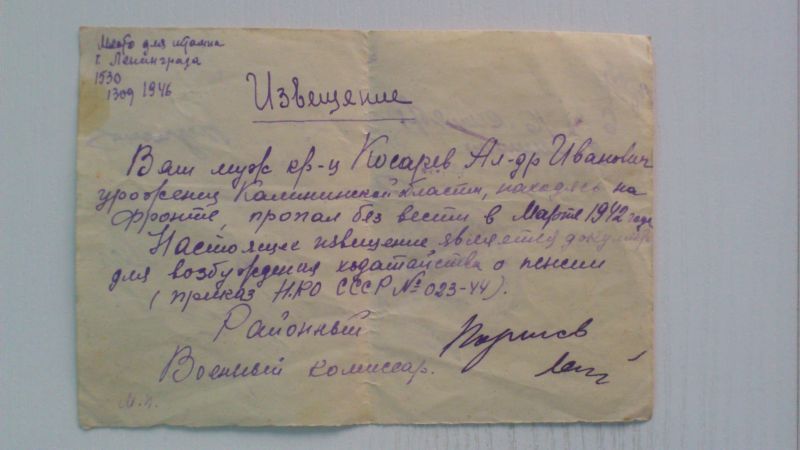 Место для штампа
г. Ленинграда
1530
1309 1946
Извещение
Ваш муж кр-ц Косарев Ал-др Иванович
уроженец Калининской области, находясь на
фронте, пропал без вести в Марте 1942 года
Настоящее извещение является докумен
для возбуждения ходатайства о пенсии
(приказ НКО СССР № 023-44).
Районный
Военный комиссар.
М.п.